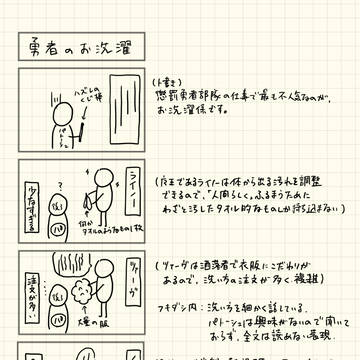 勇者のお洗濯
ハズレの
くじ棒
パトーシュ
(ト書き)
懲罰勇者部隊の仕事で最も不人気なのが、
お洗濯係です。
ライノー
少なすぎる
?
何か
タオルのようなもの1枚
(魔王であるライノーは体から出る汚れを調整
できるので、"人間らしく"ふるまうために
わざと汚したタオル的なものしか持ち込まない)
ツァーヴ
注文が多い
大量の服
(ツァーヴは洒落者で衣服にこだわりが
あるので、洗い方の注文が多く、複雑)
フキダシ内:洗い方を細かく話している。
パトーシュは興味がないので聞いて
おらず、全文は読めない表現